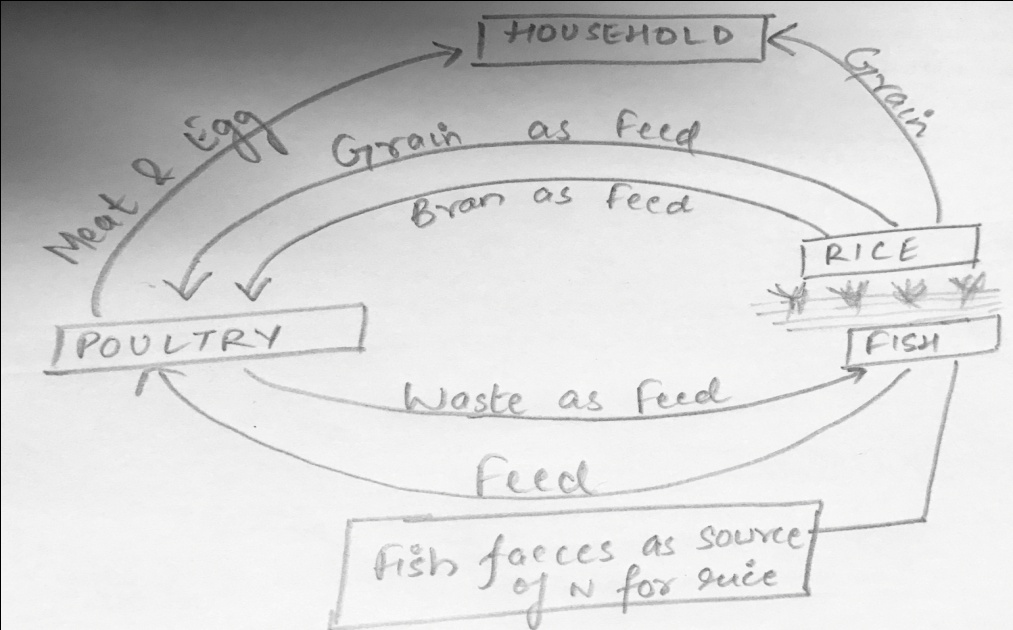 HOUSEHOLD
Grain
Meat & Egg
Grain as Feed
Bran as Feed
RICE
POULTRY
FISH
Waste as Feed
Feed
Fish faeces as source
of N for rice